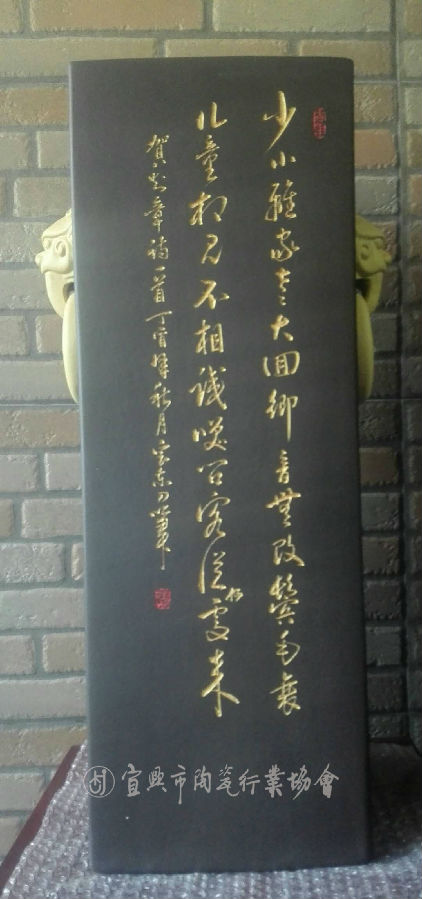 少小離家老大回鄉音無改鬢毛衰
儿童相見不相識笑问客從何處来
賀知章詩一首丁酉年秋月
宜興市陶瓷行業協會